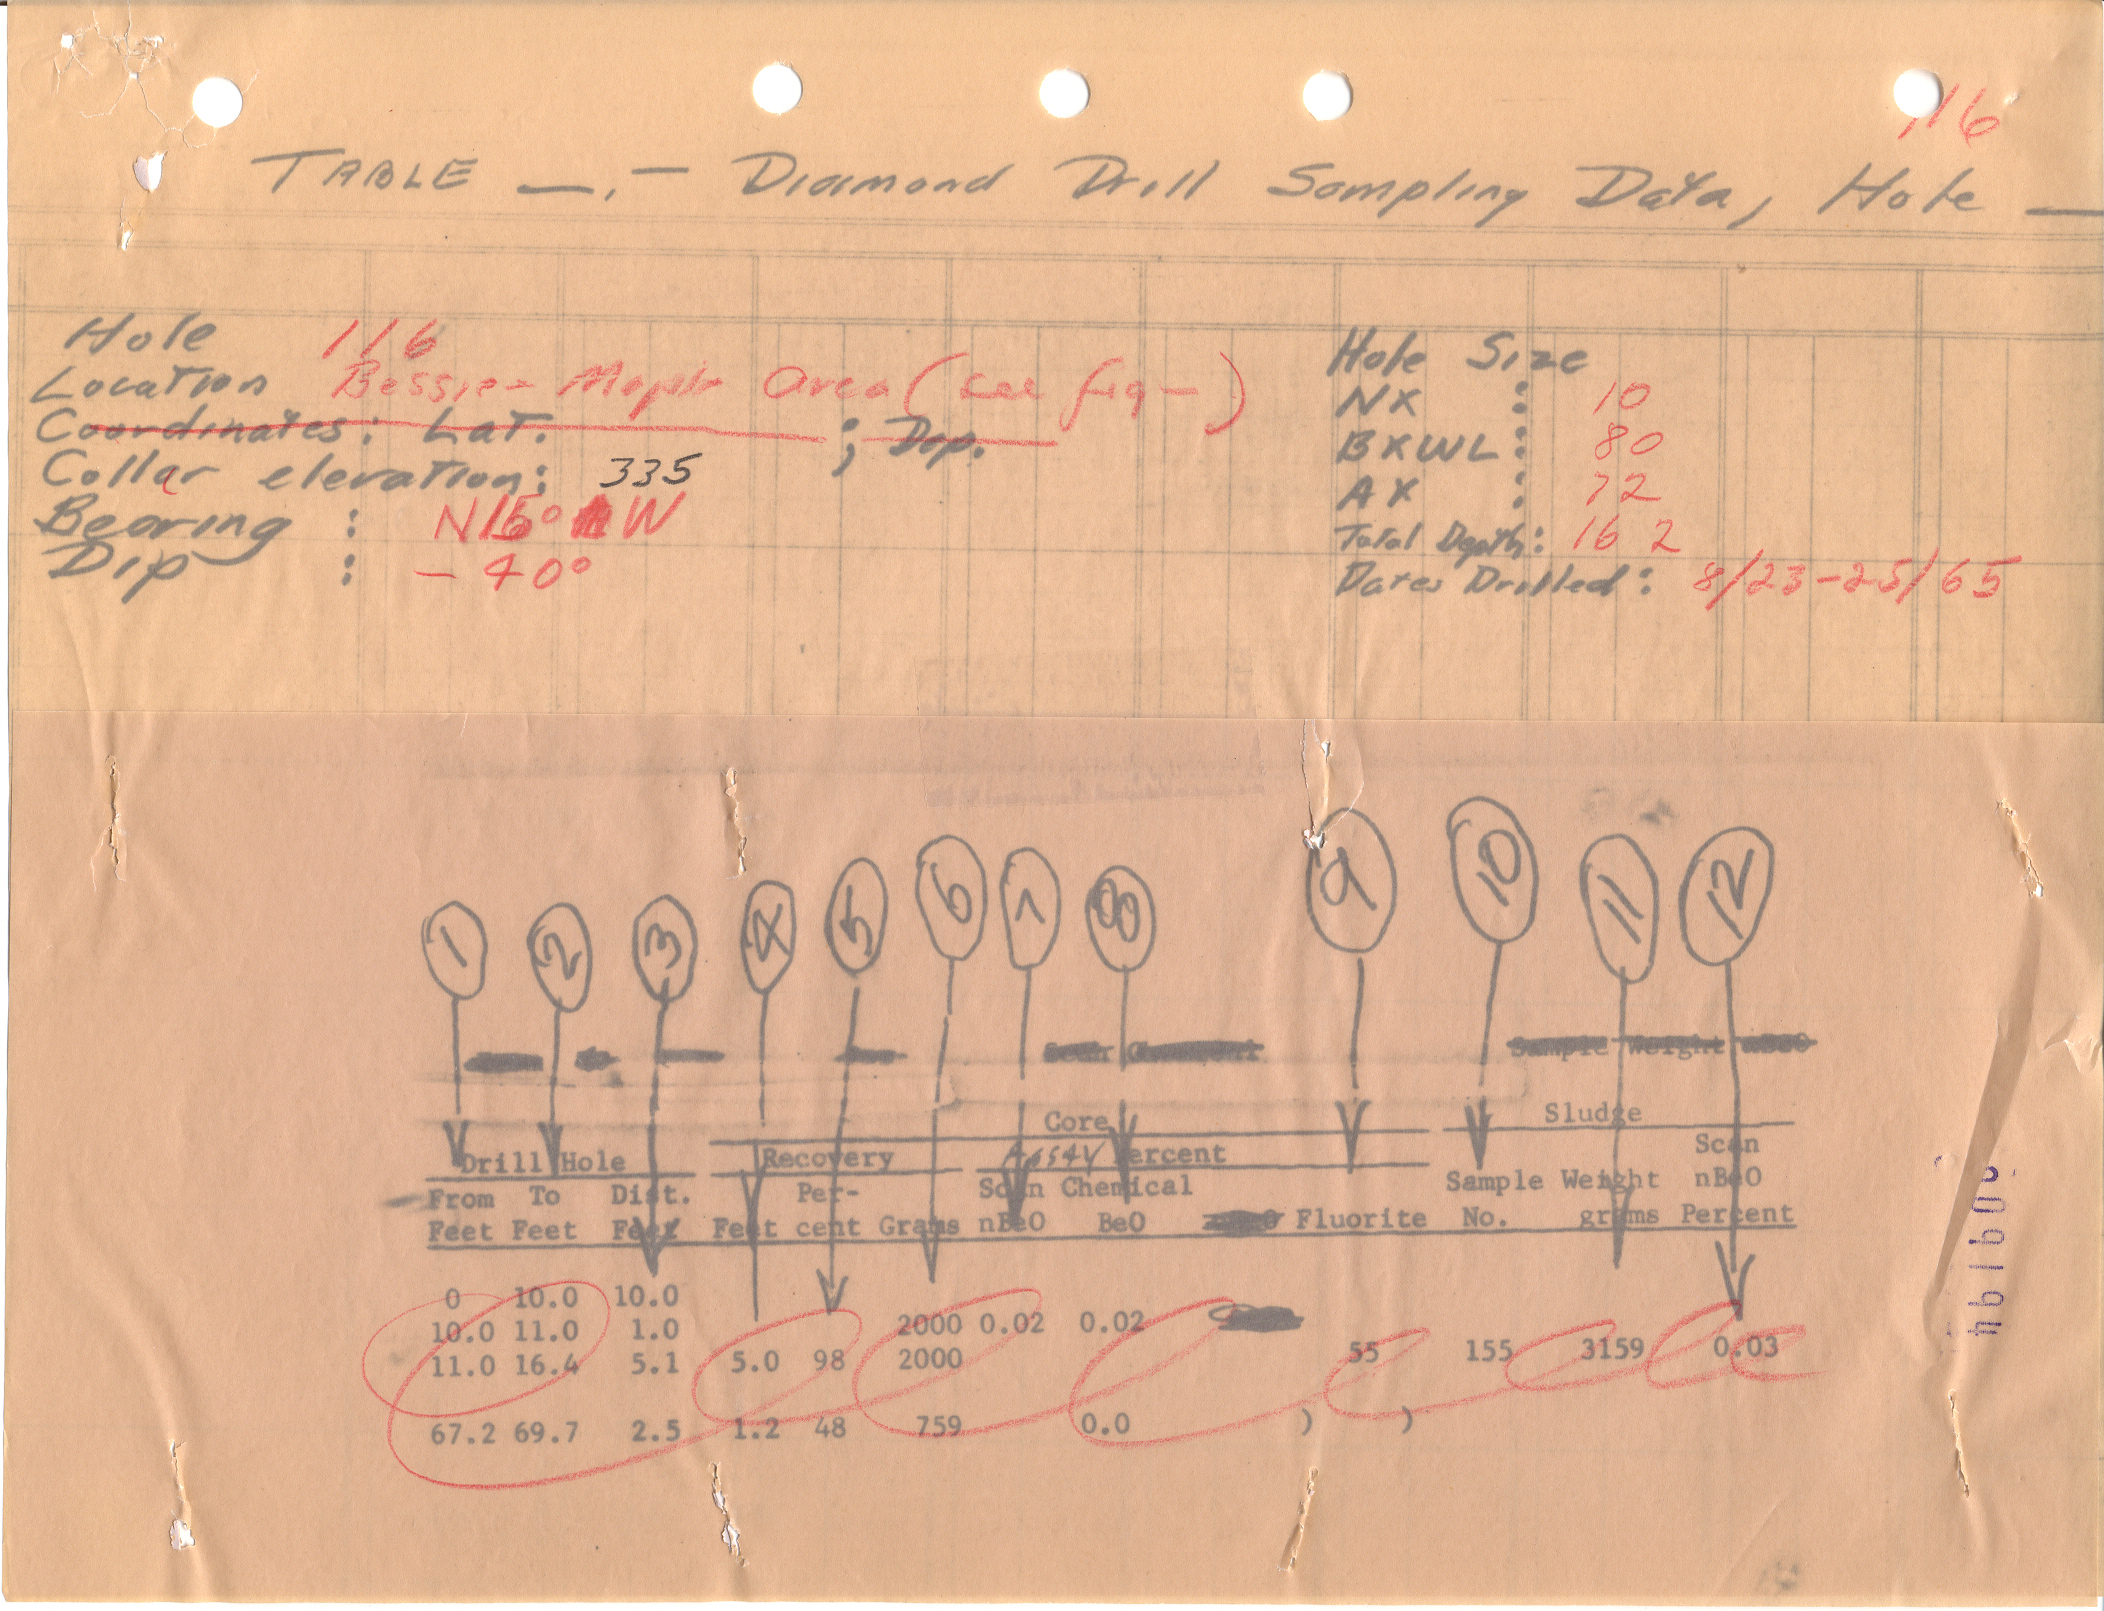 116
TABLE —.— Diamond Drill Sampling Data, Hole —
Hole 116
Location Bessie-Maple Area (see fig—)
Coordinates: Lat. ; Dep.
Collar elevation: 335
Bearing : N 15° W
Dip : -40°
Hole Size
NX : 10
BXWL: 80
AX : 72
Total Depth: 162
Dates Drilled: 8/23-25/65
1 2 3 4 5 6 7 8 9 10 11 12
Sample Weight nBeO
Core
Sludge
Drill Hole Recovery Assay Percent Scan
From To Dist. Per- Scan Chemical Sample Weight nBeO
Feet Feet Feet Feet cent Grams nBeO BeO Fluorite No. grams Percent
0 10.0 10.0
10.0 11.0 1.0 2000 0.02 0.02
11.0 16.4 5.1 5.0 98 2000 55 155 3159 0.03
67.2 69.7 2.5 1.2 48 759 0.0 ) )